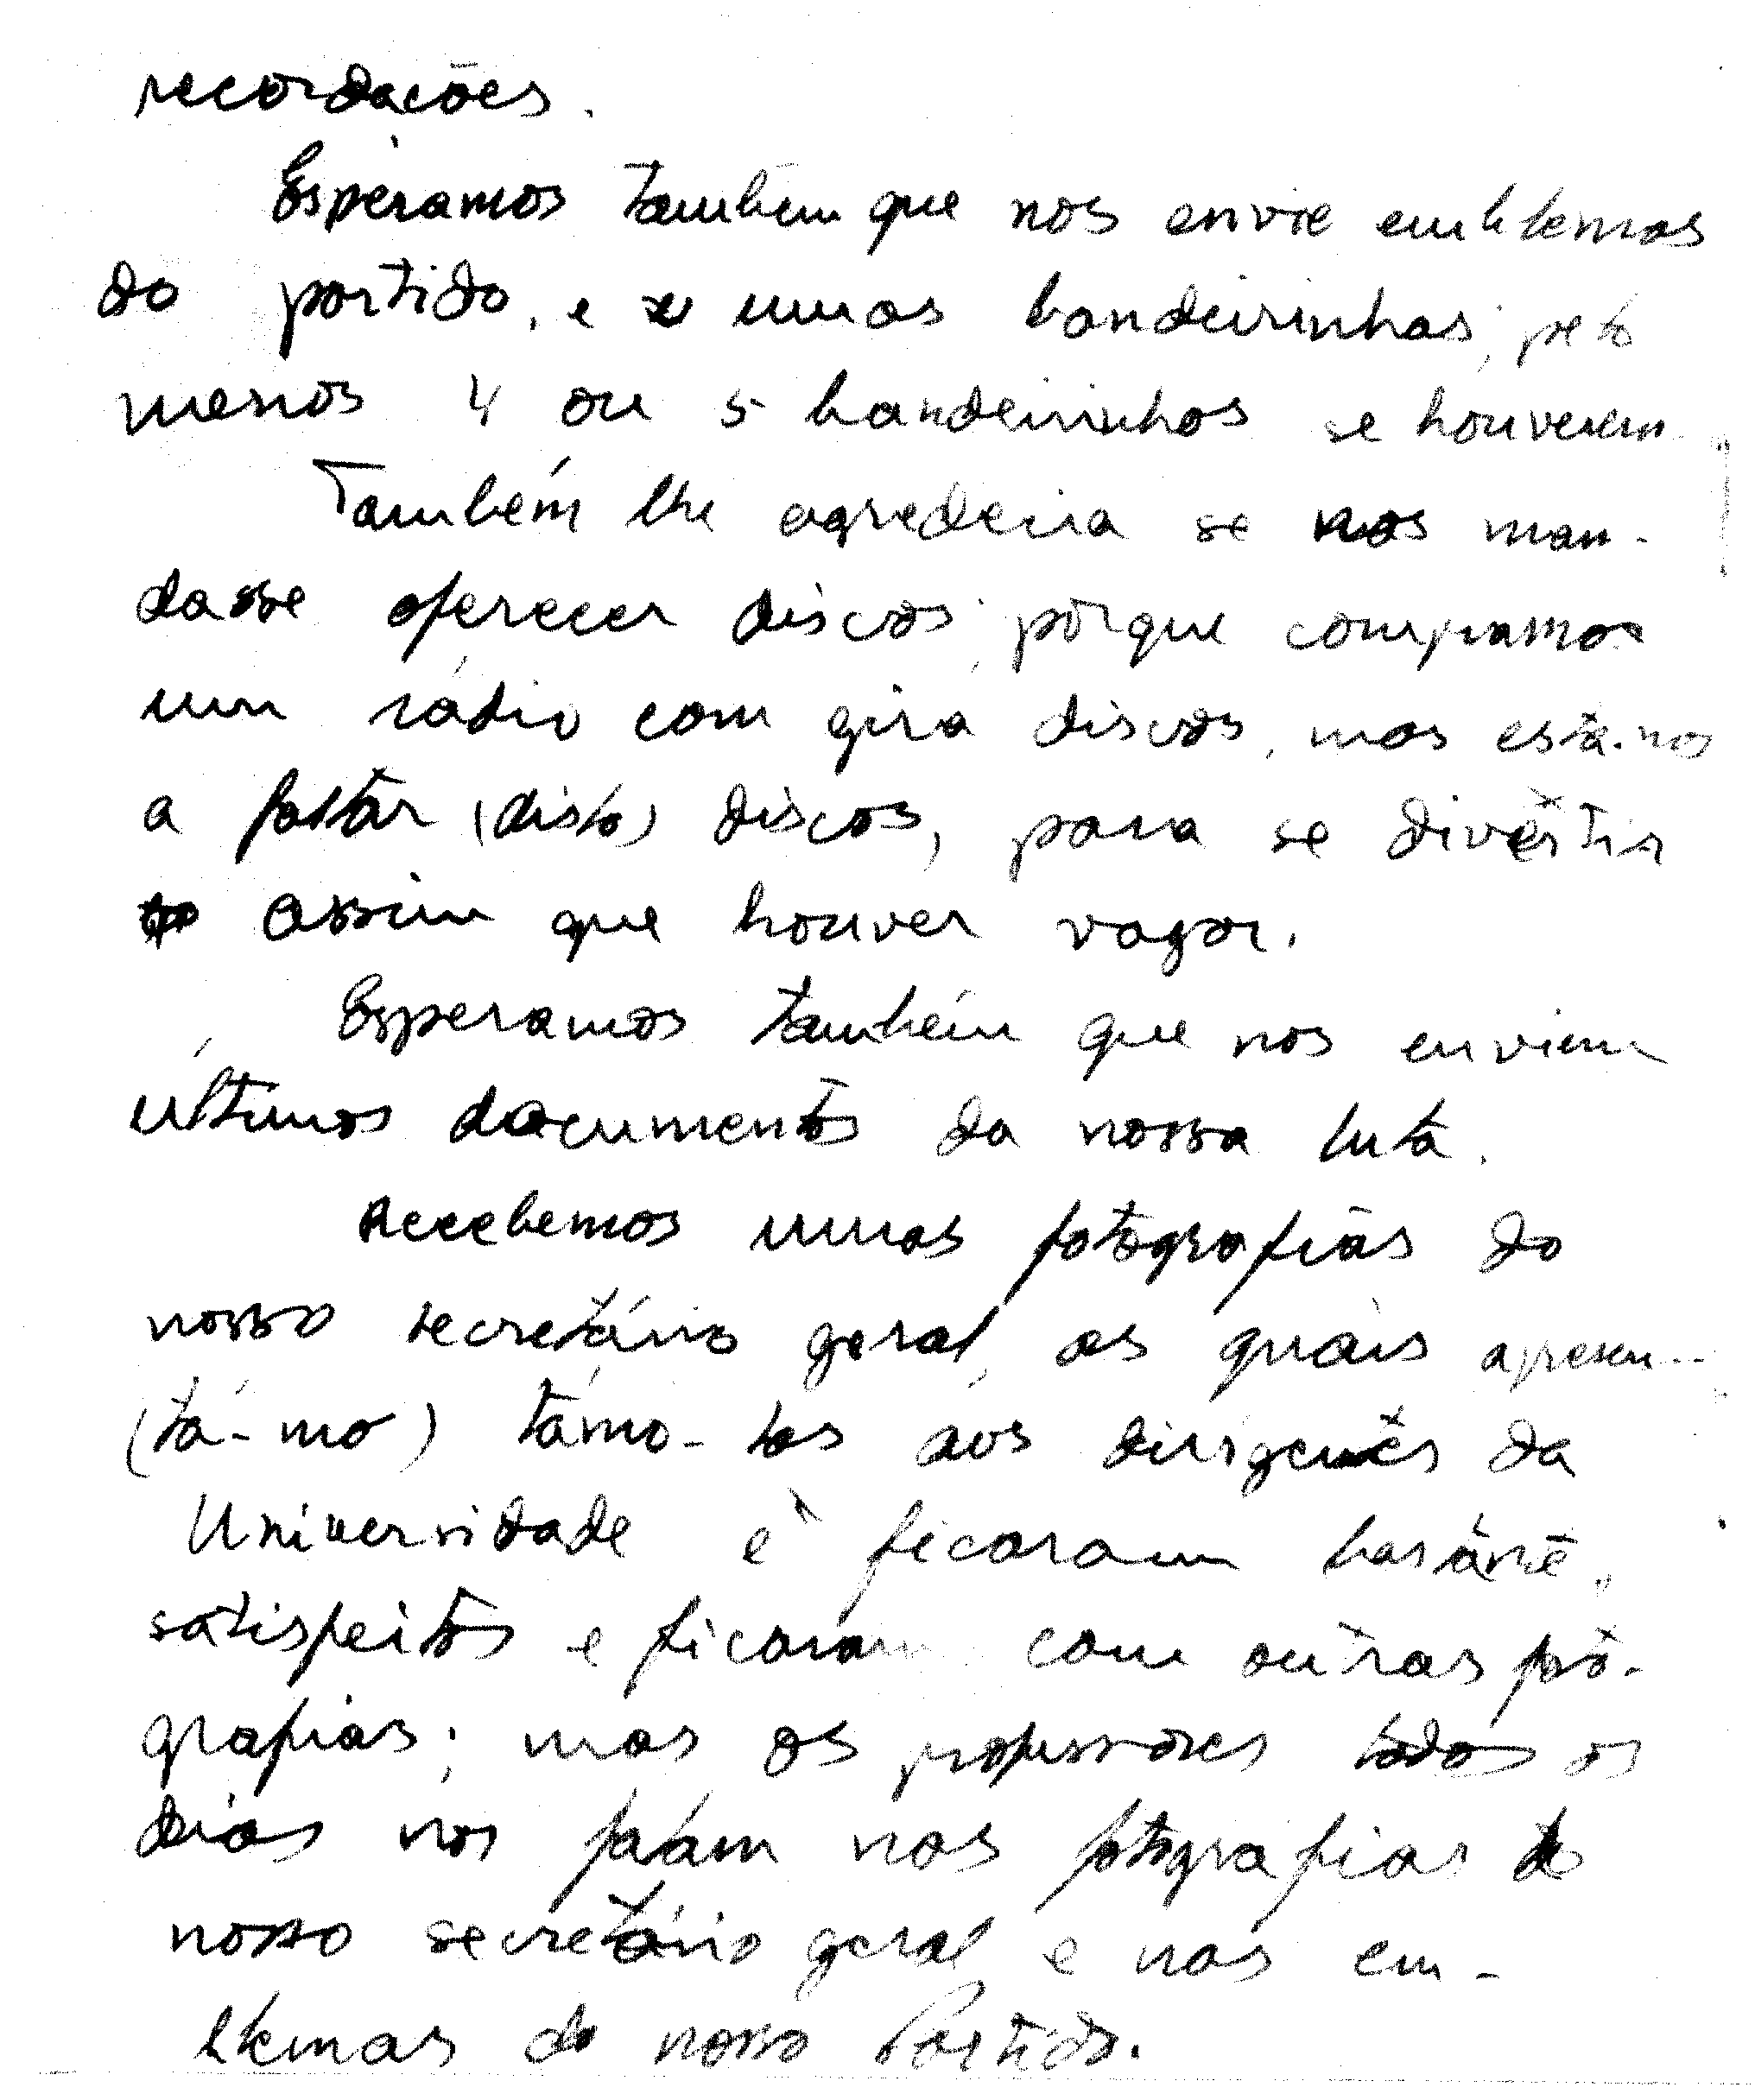 recordações.
Esperamos também que nos envie emblemas
do partido, e umas bandeirinhas, pelo
menos 4 ou 5 bandeirinhas se houverem
Também lhe agrederia se nos man-
dasse oferecer discos, porque compramos
um rádio com gira discos, mas está-nos
a faltar (disto) discos, para se divertir
assim que houver vagar.
Esperamos também que nos enviem
últimos documentos da nossa luta.
Recebemos umas fotografias do
nosso secretário geral, as quais apresen-
(tá-mo) támo-las aos dirigentes da
Universidade e ficaram bastante
satisfeitos e ficaram com outras foto-
grafias; mas os professores todos os
dias nos falam nas fotografias do
nosso secretário geral e nas em-
blemas do nosso Partido.